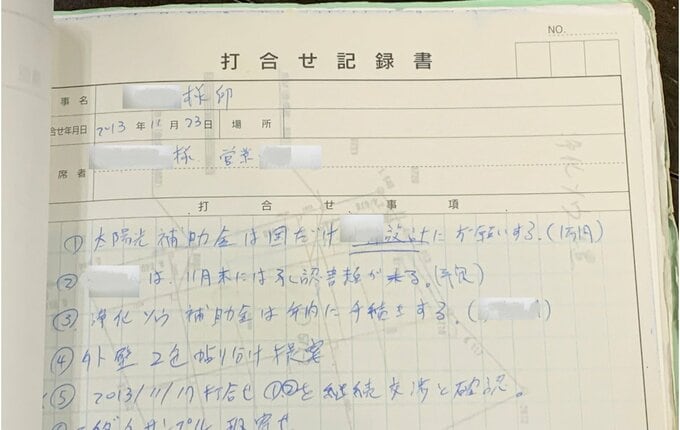 NO.
打合せ記録書
事名 様邸
合せ年月日 2013年11月23日 場所
席者 様 営業
打合せ事項
① 太陽光補助金は国だけ 設計にお願いする。(1万円)
② は、11月末には 認書類が来る。
③ 浄化ソウ補助金は年内に手続きする。( )
④ 外壁2色帖り分け提案
⑤ 2013/11/17打合せ①②を継続交渉と確認。
サンプル取寄せ